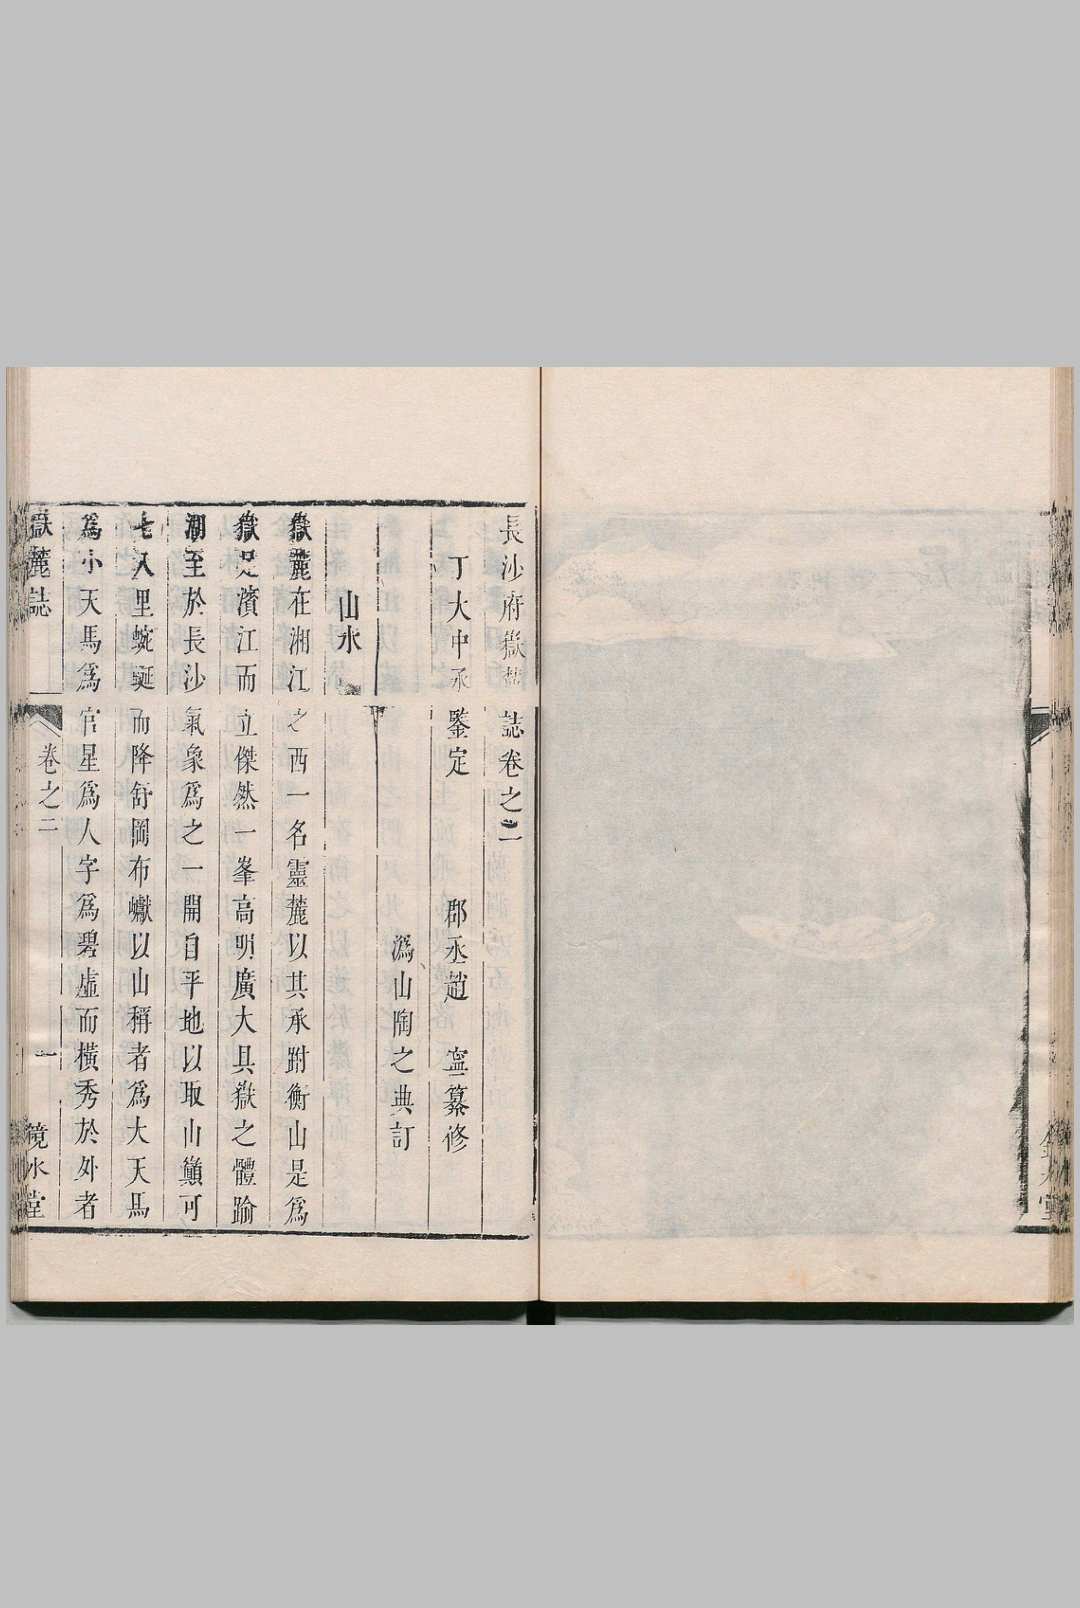 長沙府嶽麓誌卷之二
丁大中丞鑒定 郡丞趙 寧纂修
潙山陶之典訂
山水
嶽麓在湘江之西一名靈麓以其承跗衡山是爲
嶽足濱江而立傑然一峯高明廣大具嶽之體踰
湖至於長沙氣象爲之一開自平地以取山巔可
七八里蜿蜒而降舒岡布巘以山稱者爲大天馬
爲小天馬爲官星爲人字爲碧虛而橫秀於外者
嶽麓誌 卷之二 一 鏡水堂